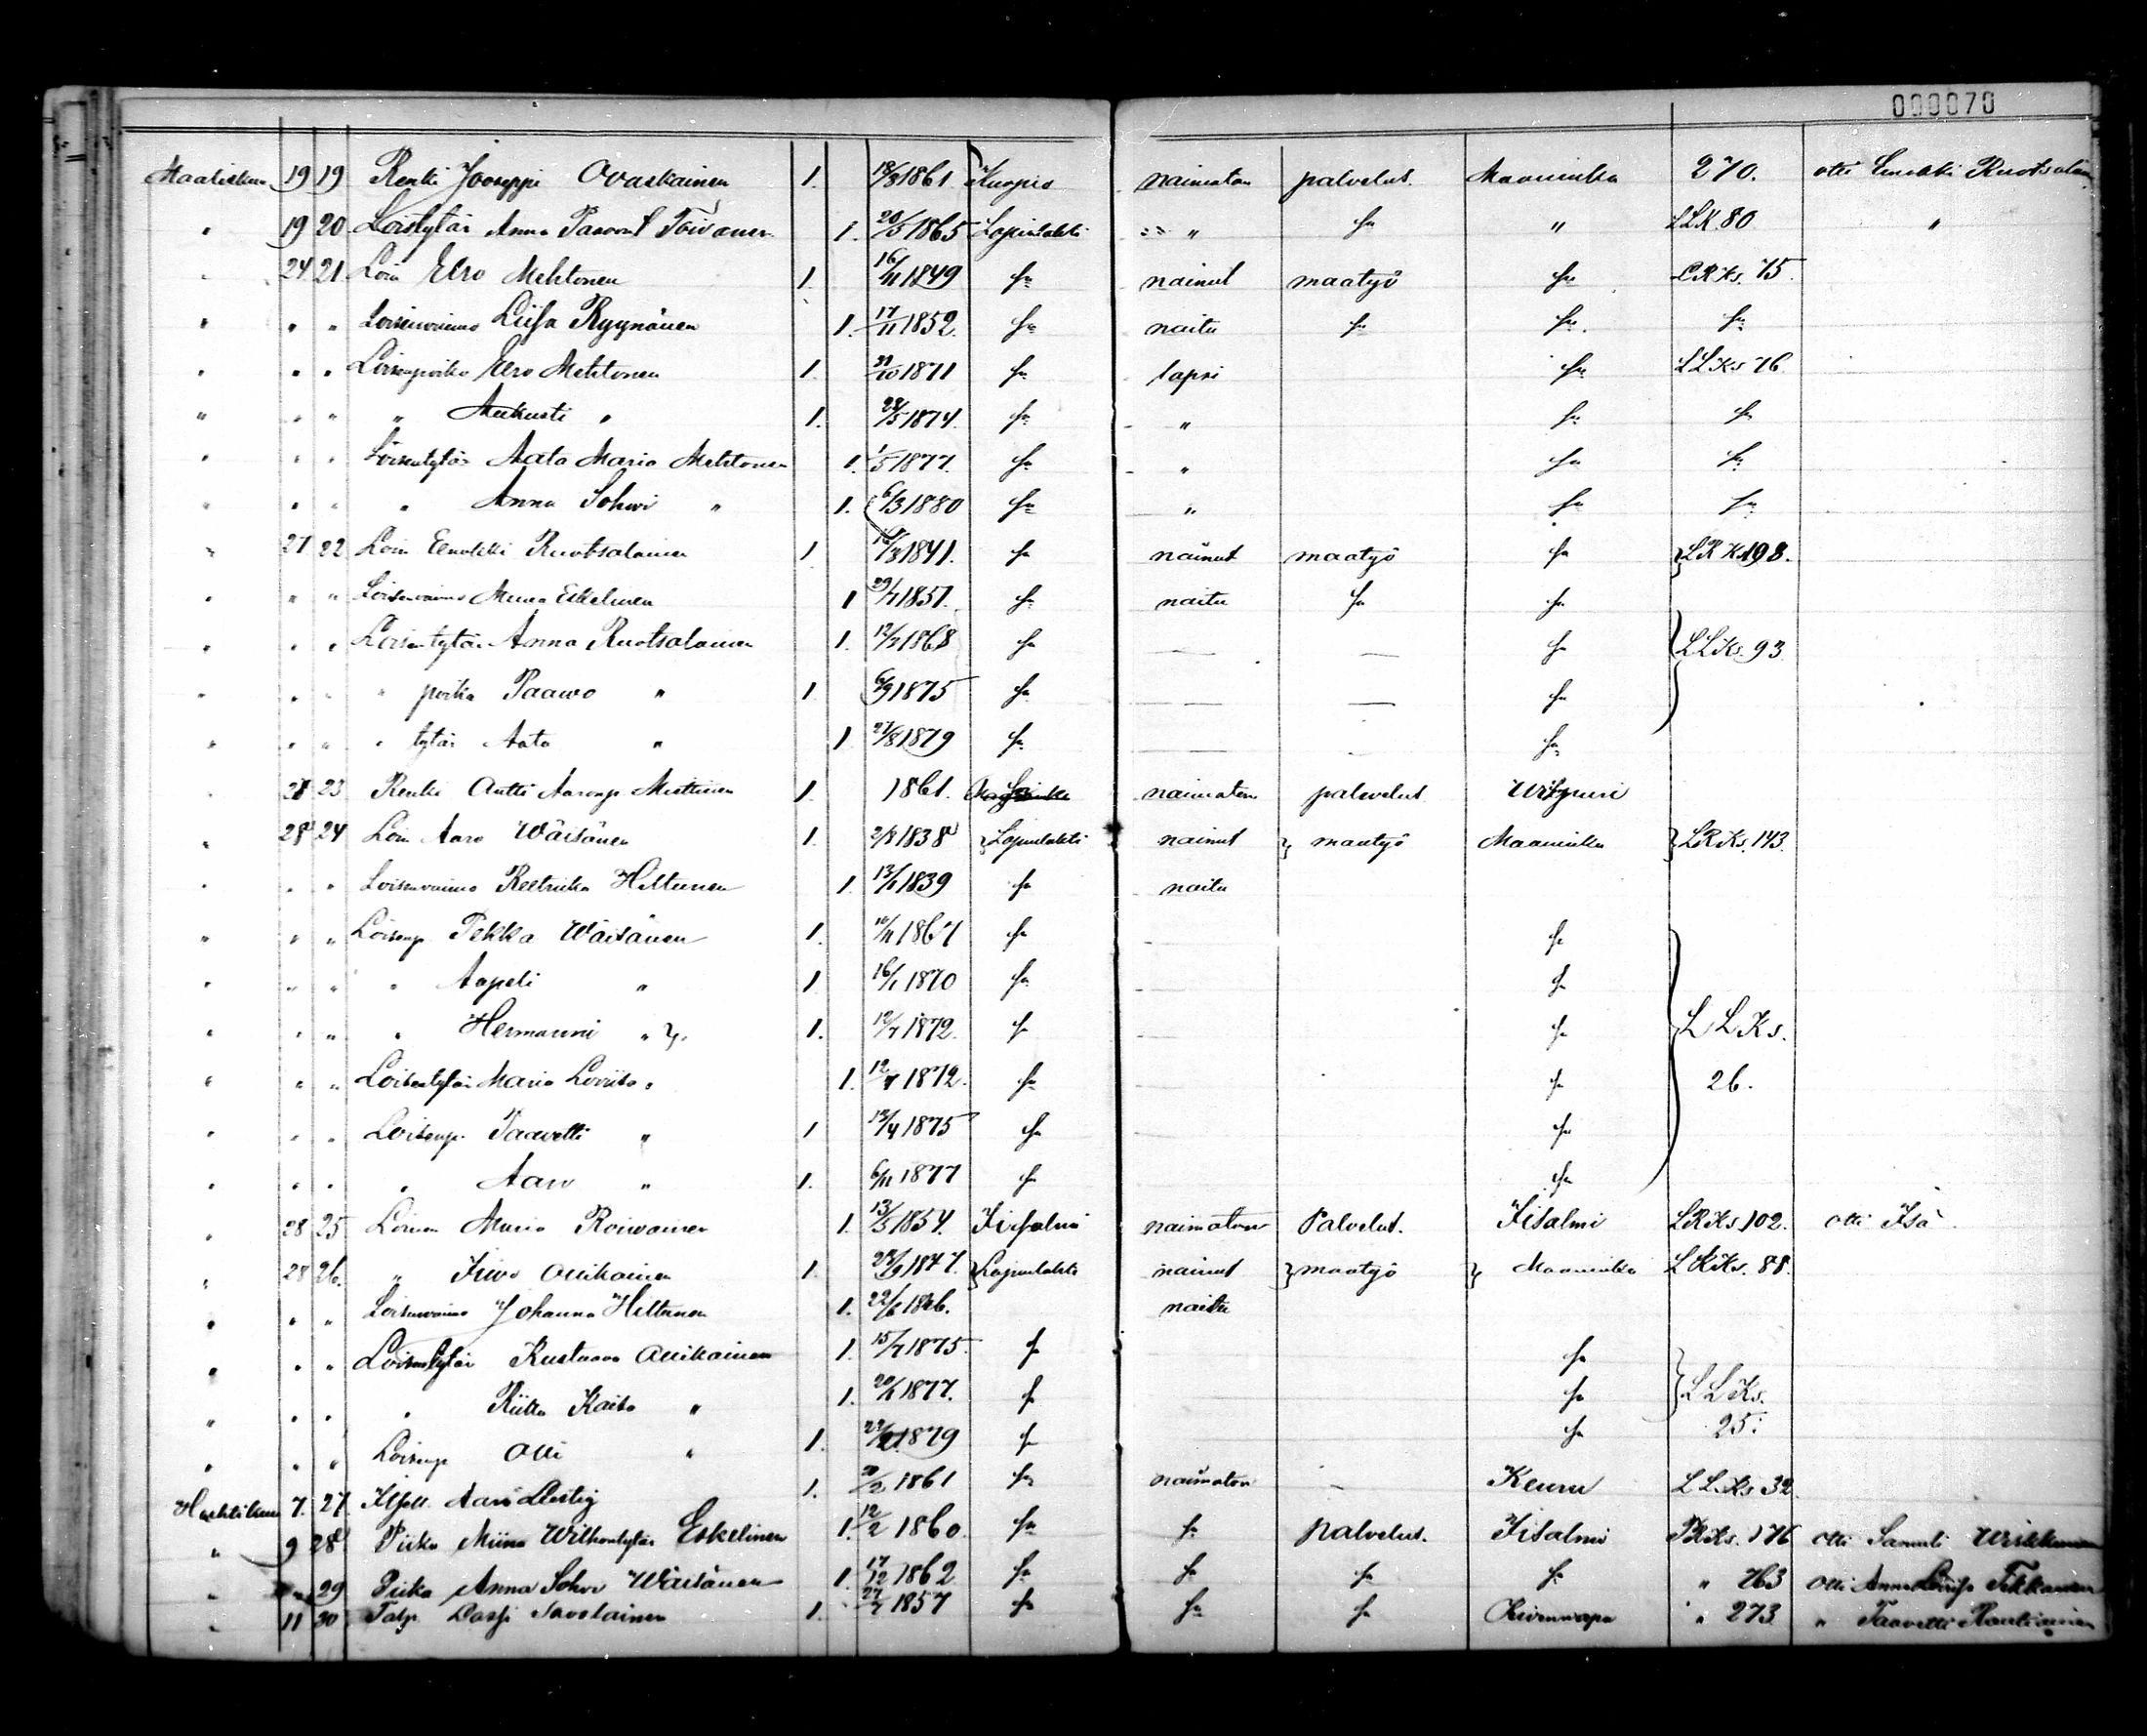 000070
Maalisku 19 19 Renki Jooseppi Ovaskainen 1. 18/8 1861 Kuopio naimaton palvelut. Maaninka 270. otti Enokki Ruotsalain
" 19 20 Loistytär Anna Paavont Toivanen 1. 20/5 1865 Lapinlahti " sn " LLK. 80 "
" 24 21. Lois Eero Mehtonen 1. 16/11 1849 sn nainut maatyö sn LRKs. 75.
" " " Loisenvaimo Liisa Ryynänen 1. 17/11 1852. sn naitu sn sn sn
" " " Loisenpoika Eero Mehtonen 1. /10 1871 sn lapsi sn LLKs 76.
" " " " Aukusti " 1. 28/5 1874. sn " sn sn
" " " Loisentytär Aata Maria Mehtonen 1. 1/5 1877. sn " sn sn
" " " " Anna Sohwi " 1. 6/3 1880 sn " sn sn
" 27 22 Lois Eenokki Ruotsalainen 1. 16/3 1841. sn nainut maatyö sn LRK 198.
" " " Loisenvaimo Miina Eskelinen 1 29/7 1851. sn naitu sn sn
" " " Loisentytär Anna Ruotsalainen 1. 12/7 1868 sn — — sn LLKs. 93
" " " " poika Paawo " 1. 6/9 1875 sn — — sn
" " " " tytär Aata " 1 27/8 1879 sn — — sn
" 28 23 Renki Antti Aaronp Miettinen 1. 1861. naimaton palvelut Wiipuri
" 28 24 Lois Aaro Wäisänen 1. 2/8 1838 Lapinlahti nainut maatyö Maaninka LRKs. 143.
" " " Loisenvaimo Reetrikka Hiltunen 1. 13/1 1839 sn naitu
" " " Loisenp Pekka Wäisänen 1. 10/11 1867 sn — sn
" " " " Aapeli " 1 16/1 1870 sn — sn
" " " " Hermanni " 1. 12/7 1872. sn — sn LLKs.
" " " Loisentytär Maria Loviisa " 1. 12/7 1872. sn — sn 26.
" " " Loisenp. Taavetti " 1 13/4 1875 sn — sn
" " " " Aaro " 1. 6/11 1877 sn — sn
" 28 25 Loinen Maria Roivainen 1. 13/5 1854. Iisalmi naimaton Palvelut. Iisalmi LRKs 102. otti Itsä
" 28 26. " Iivo Ollikainen 1. 23/9 1847. Lapinlahti nainut maatyö Maaninka LRKs. 88.
" " " Loisenvaimo Johanna Hiltunen 1. 22/6 1846. naitu
" " " Loisentytär Kustaava Ollikainen 1. 15/7 1875. sn sn
" " " " Riitta Kaisa " 1. 20/1 1877. sn sn LLKs.
" " " Loisenp Olli " 1. 1879 sn sn 25.
Huhtikuu 7. 27. Itsell. Aaro Lustig 1. /2 1861 sn naimaton — Keuru LLKs 32.
" 9 28 Piika Miina Wilhontytär Eskelinen 1. 12/2 1860. sn sn palvelut. Iisalmi PRKs. 176 otti Samuli
" " 29 Piika Anna Sohvi Wäisänen 1. 17/12 1862 sn sn sn sn " 763 Otti Anna Loviisa Tikkanen
" 11 30 Talp Lassi Savolainen 1. 27/7 1857 sn sn sn " 273 " Taavetti Rautiainen